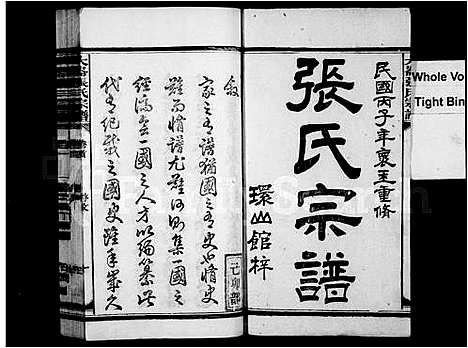 Whole Vo
Tight Bin
民國丙子年裹玉重脩
張氏宗譜
環山館梓
己卯部
敘
家之有譜猶國之有史也脩史
難而脩譜尤難何則集一國之
經濟合一國之人才以編纂此
代有紀載之國史雖年歲久